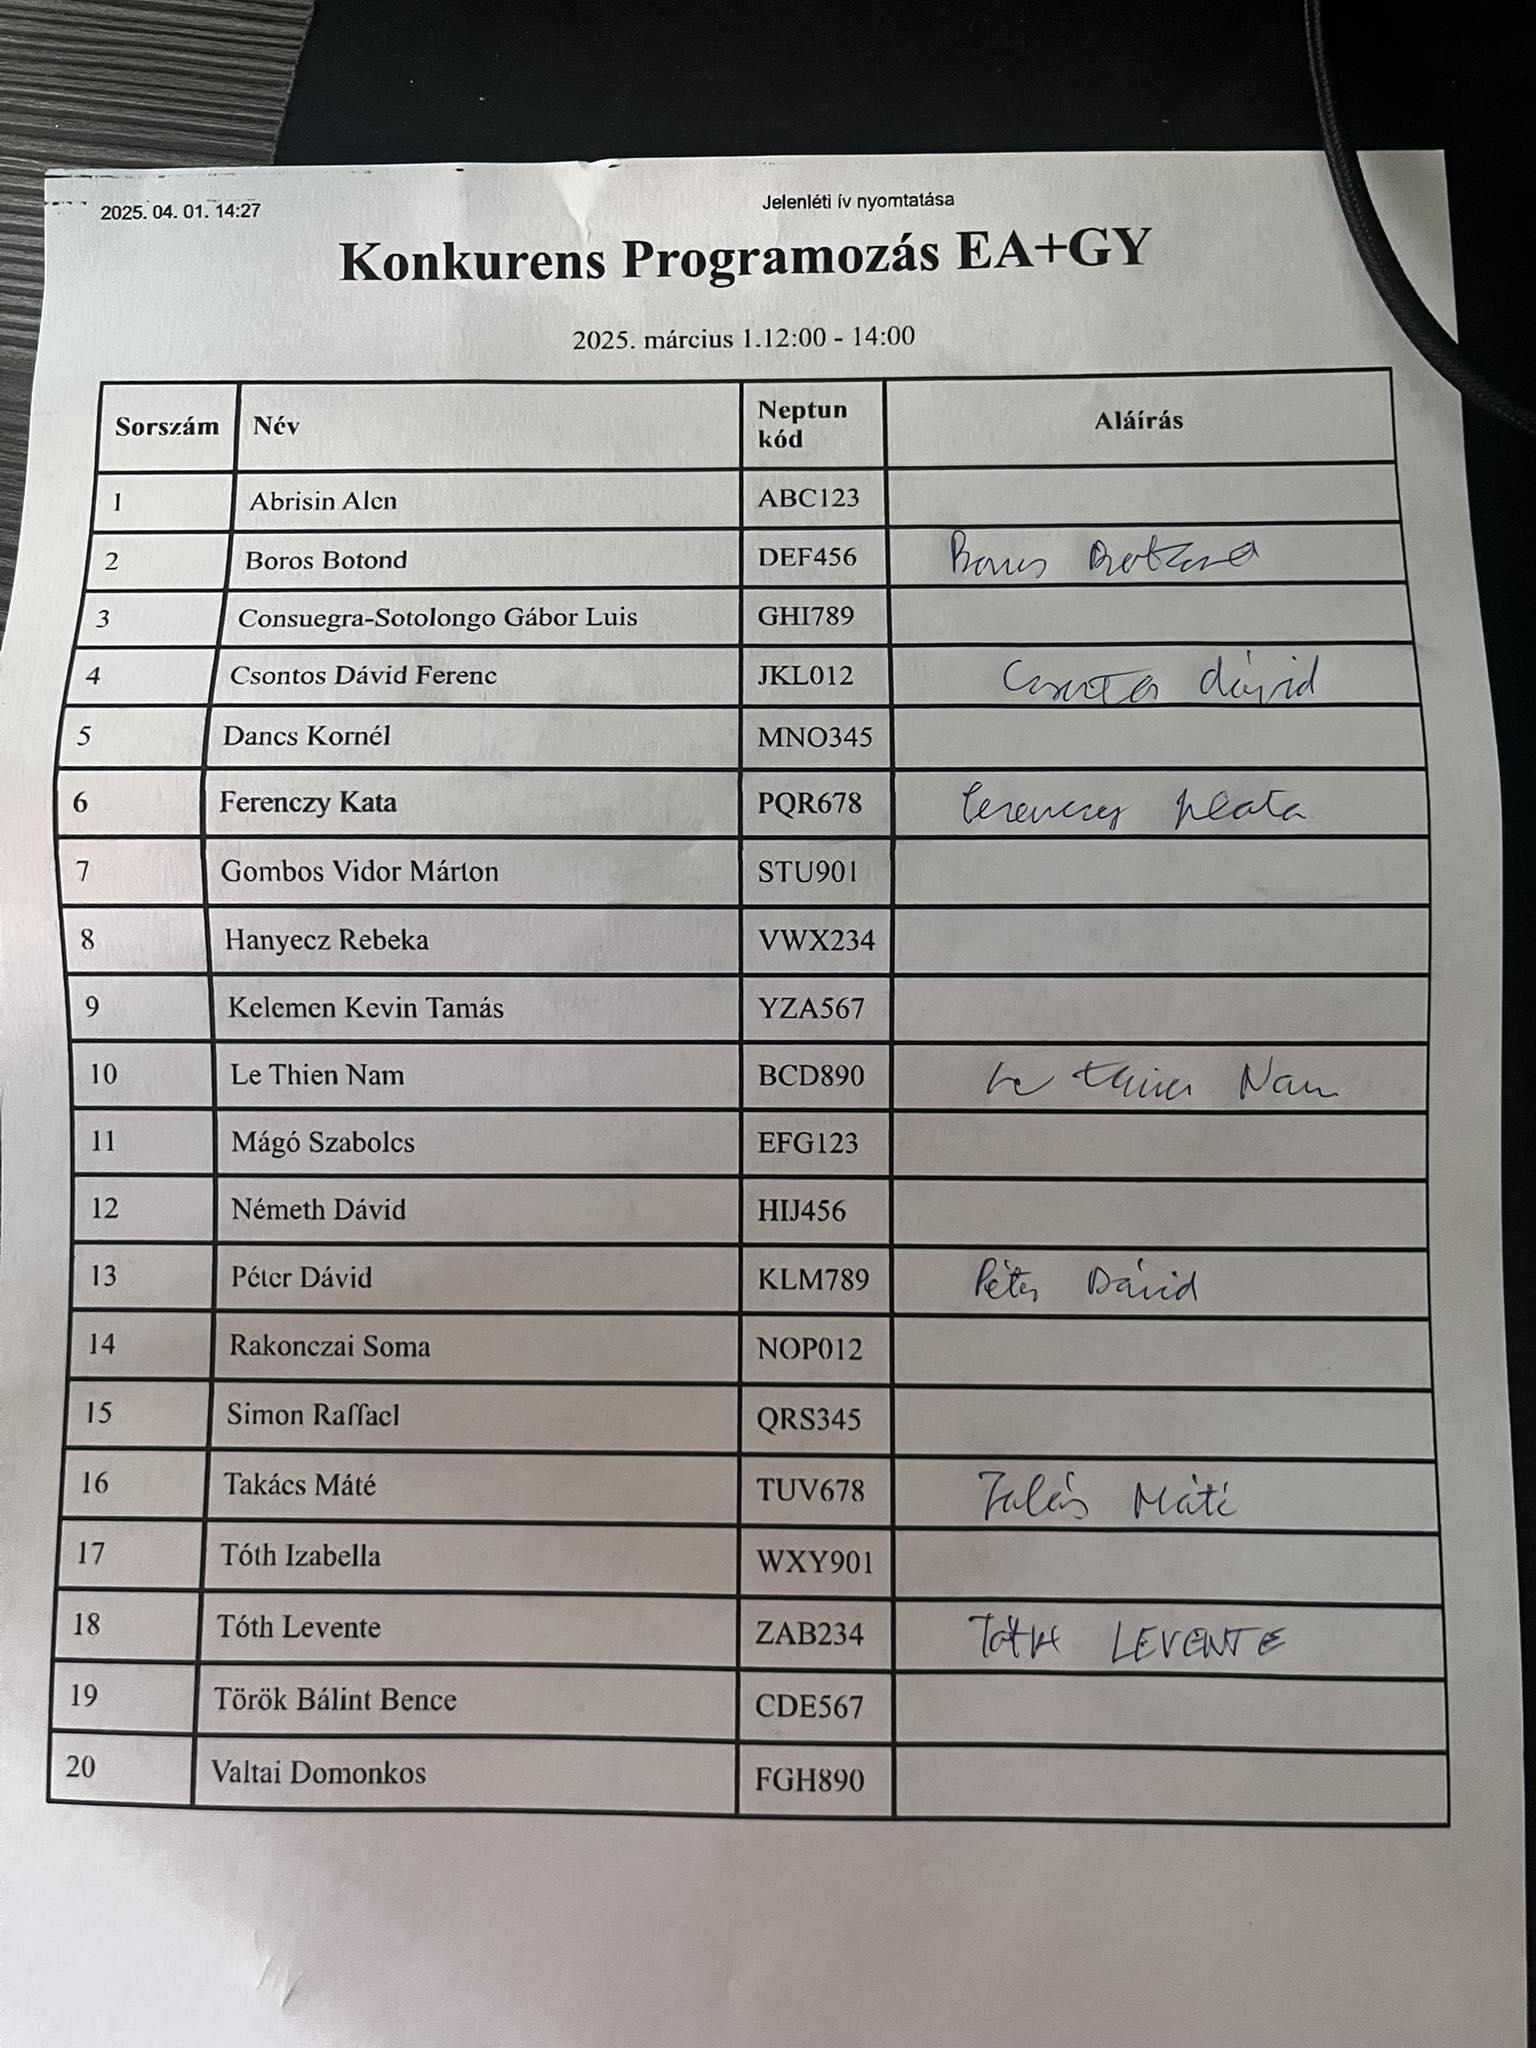 2025. 04. 01. 14:27 Jelenléti ív nyomtatása
Konkurens Programozás EA+GY
2025. március 1.12:00 - 14:00
Sorszám Név Neptun kód Aláírás
1 Abrisin Alen ABC123
2 Boros Botond DEF456 Boros Botond
3 Consuegra-Sotolongo Gábor Luis GHI789
4 Csontos Dávid Ferenc JKL012 Csontos dávid
5 Dancs Kornél MNO345
6 Ferenczy Kata PQR678 Ferenczy Kata
7 Gombos Vidor Márton STU901
8 Hanyecz Rebeka VWX234
9 Kelemen Kevin Tamás YZA567
10 Le Thien Nam BCD890 Le Thien Nam
11 Mágó Szabolcs EFG123
12 Németh Dávid HIJ456
13 Péter Dávid KLM789 Péter Dávid
14 Rakonczai Soma NOP012
15 Simon Raffael QRS345
16 Takács Máté TUV678 Takács Máté
17 Tóth Izabella WXY901
18 Tóth Levente ZAB234 TÓTH LEVENTE
19 Török Bálint Bence CDE567
20 Valtai Domonkos FGH890